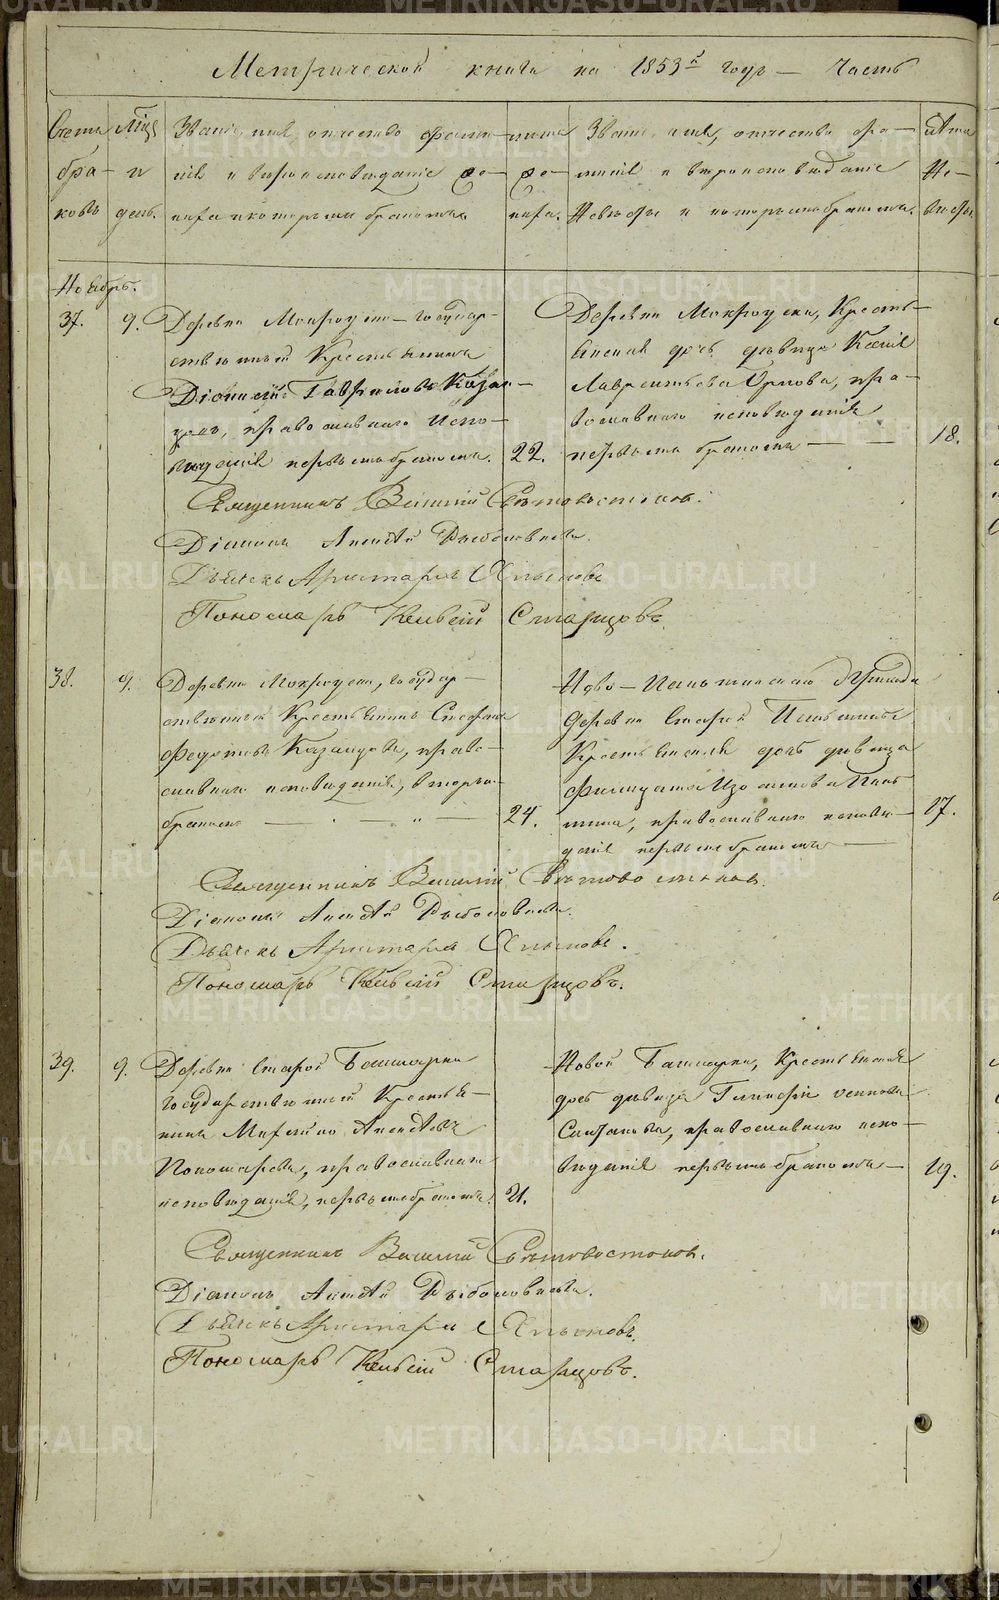 Метрической книги на 1853й годъ — Часть
Счетъ Мцъ Званіе, имя, отчество, фами- лѣта Званіе, имя, отчество, фа- лѣта
бра- и лія и вѣроисповѣданіе же- же- милія и вѣроисповѣданіе Не-
ковъ день. ниха и которымъ бракомъ. ниха. Невѣсты и которымъ бракомъ. вѣсты.
Ноябрь.
37. 9. Деревни Мокроусна, государ-
ственный Крестьянинъ
Діонисій Гавриловъ Казан-
цовъ, православнаго Испо-
вѣданія первымъ бракомъ. 22.
Деревни Мокроусна, Кресть-
янская дочь дѣвица Ксенія
Лаврентьева Орлова, пра-
вославнаго исповѣданія
первымъ бракомъ — 18.
Священникъ Василій Свѣтовостоковъ.
Діаконъ Алексѣй
Дьячекъ Аристархъ Хлыновъ
Пономарь Старцовъ.
38. 9. Деревни Мокроусна, государ-
ственный Крестьянинъ Стефанъ
Федотовъ Казанцовъ, право-
славнаго исповѣданія, вторымъ
бракомъ — 24.
Ново-Пышминской
деревни Старой Пышмы
Крестьянская дочь дѣвица
Фелицата Изосимова Пыш-
мина, православнаго исповѣ- 27.
данія первымъ бракомъ —
Священникъ Василій Свѣтовостоковъ.
Діаконъ Алексѣй
Дьячекъ Аристархъ Хлыновъ.
Пономарь Старцовъ.
39. 9. Деревни Старой Башкарки
государственный Крестья-
нинъ Алексѣевъ
Пономаревъ, православнаго
исповѣданія, первымъ бракомъ. 21.
Новой Башкарки, Крестьянская
дочь дѣвица Гликерія Осипова
православнаго испо-
вѣданія первымъ бракомъ — 19.
Священникъ Василій Свѣтовостоковъ.
Діаконъ Алексѣй
Дьячекъ Аристархъ Хлыновъ.
Пономарь Старцовъ.
METRIKI.GASO-URAL.RU